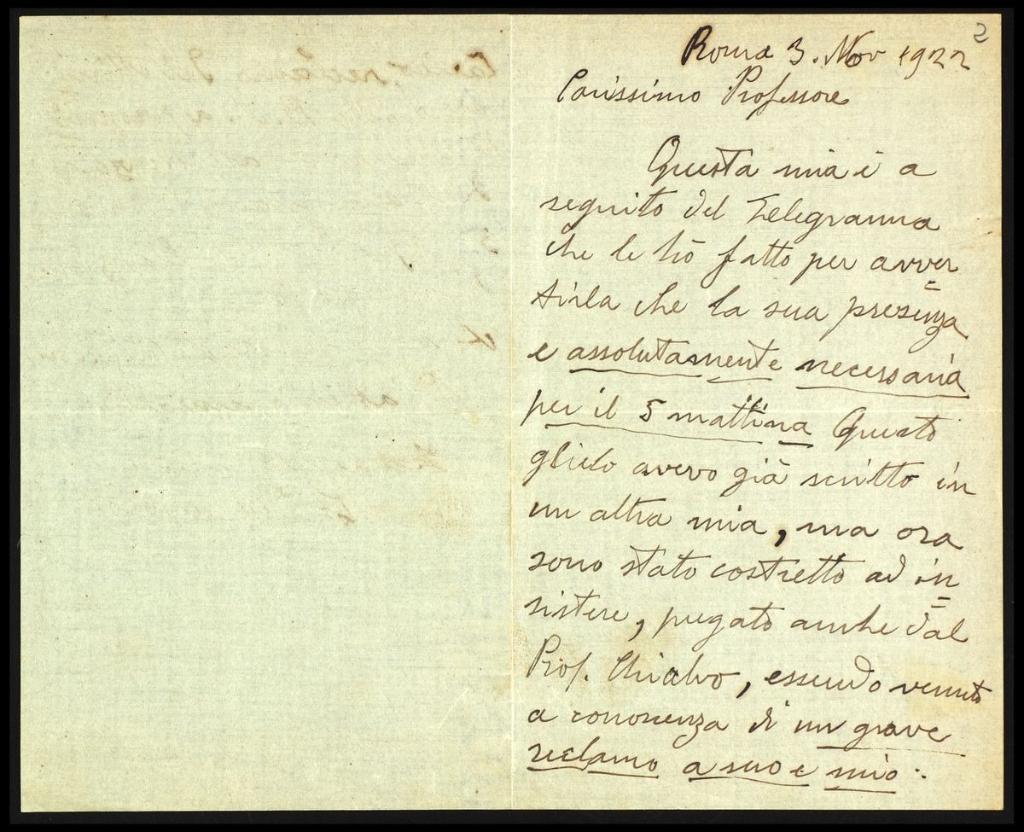 2
Roma 3. Nov 1922
Carissimo Professore
Questa mia è a
seguito del Telegramma
che le hò fatto per avver=
tirla che la sua presenza
e assolutamente necessaria
per il 5 mattina Questo
glielo avevo già scritto in
un altra mia, ma ora
sono stato costretto ad in=
sistere, pregato anche dal
Prof. Chialvo, essendo venuto
a conoscenza di un grave
reclamo a suo e mio